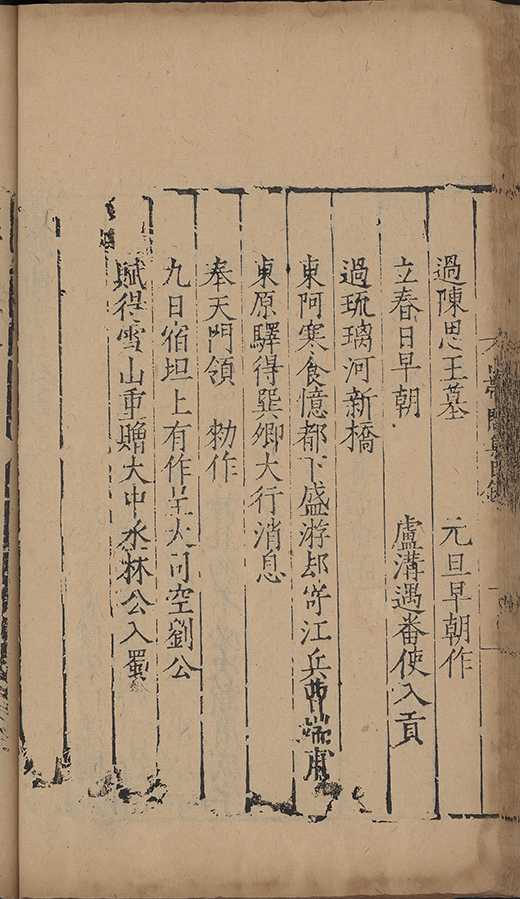 過陳思王墓 元旦早朝作
立春日早朝 盧溝遇番使入貢
過琉璃河新橋
東阿寒食憶都下盛游却寄江兵曹端甫
東原驛得巽卿大行消息
奉天門領 勑作
九日宿坦上有作呈大司空劉公
賦得雪山重贈大中丞林公入蜀